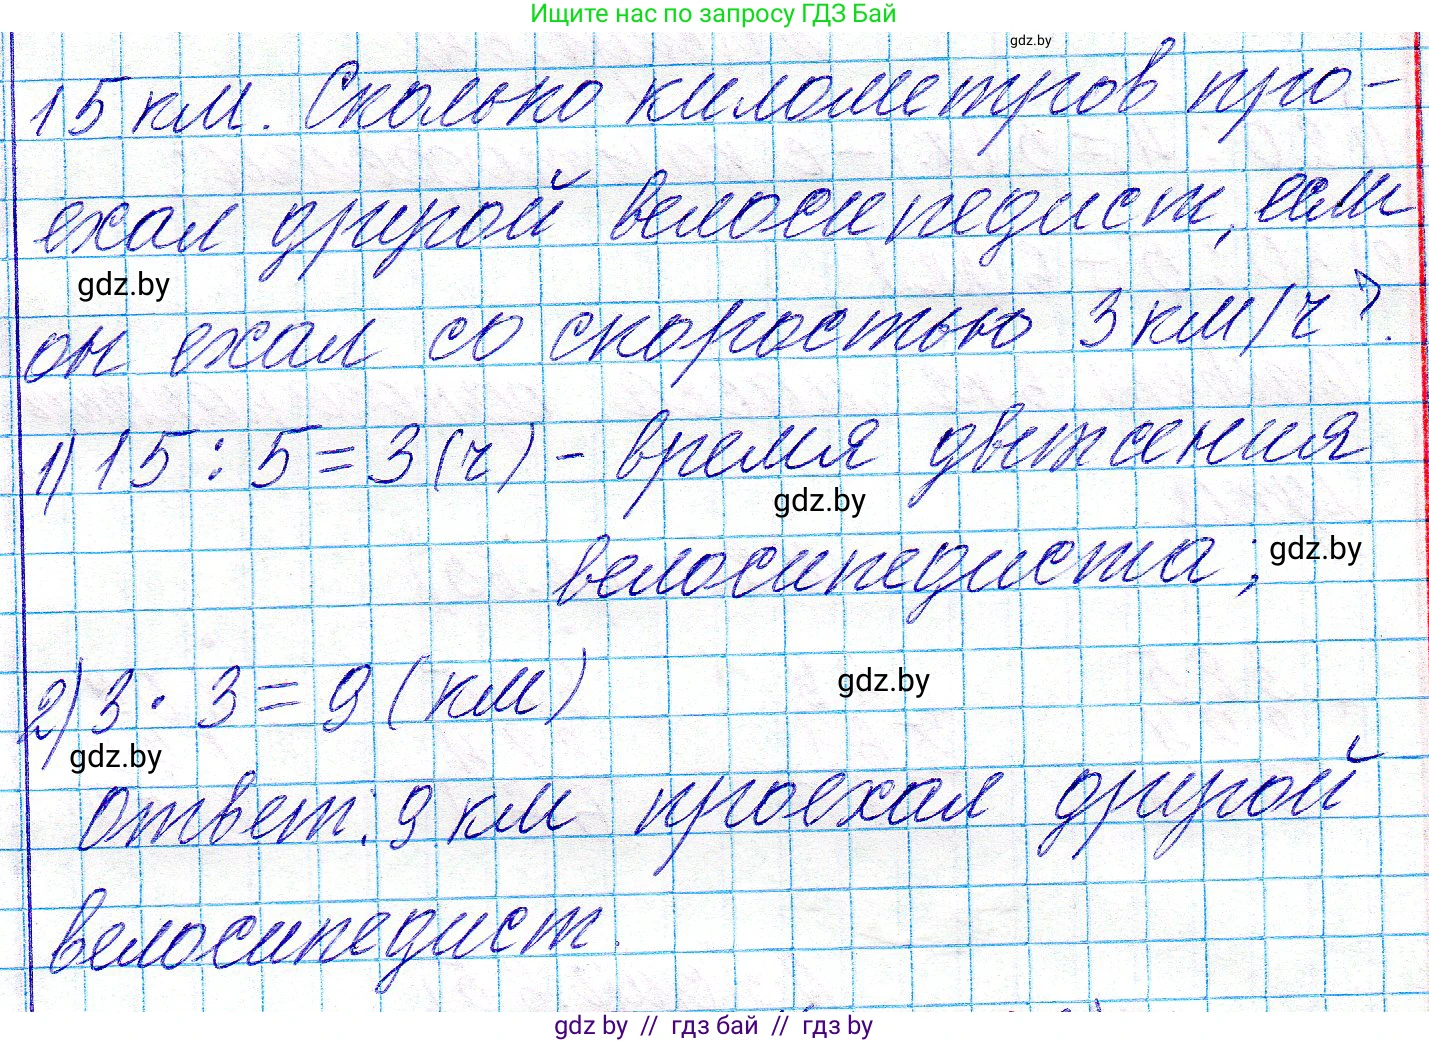 Ищите нас по запросу ГДЗ Бай
gdz.by
15 км. Сколько километров про-
ехал другой велосипедист, если
gdz.by
он ехал со скоростью 3 км/ч?
1) 15 : 5 = 3 (ч) - время движения
gdz.by
велосипедиста;
gdz.by
2) 3 · 3 = 9 (км)
gdz.by
gdz.by
Ответ: 9 км проехал другой
велосипедист.
gdz by // гдз бай // гдз by